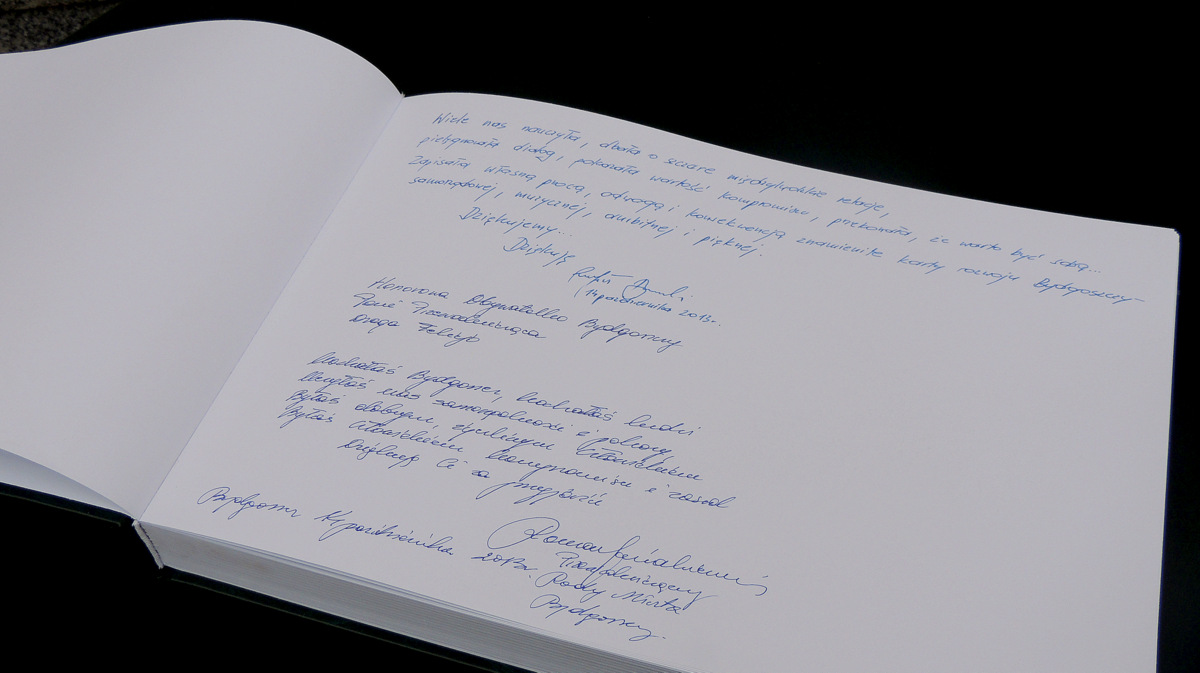 Wiele nas nauczyła, dbała o szczere międzyludzkie relacje,
pielęgnowała dialog, pokazała wartość kompromisu, przekonała, że warto być sobą...
Zapisała własną pracą, odwagą i konsekwencją znamienite karty rozwoju Bydgoszczy -
samorządowej, muzycznej, ambitnej i pięknej.
Dziękujemy...
Dziękuję
14 października 2013r.
Honorowa Obywatelko Bydgoszczy
Pani Przewodnicząca
Droga Felicjo
Kochałaś Bydgoszcz, kochałaś ludzi
Uczyłaś nas samorządności i pokory
Byłaś dobrym, życzliwym Człowiekiem
Byłaś Człowiekiem kompromisu i zasad
Dziękuję Ci za przyjaźń
Roman Jasiakiewicz
Bydgoszcz 14 październik 2013r. Przewodniczący
Rady Miasta
Bydgoszczy.